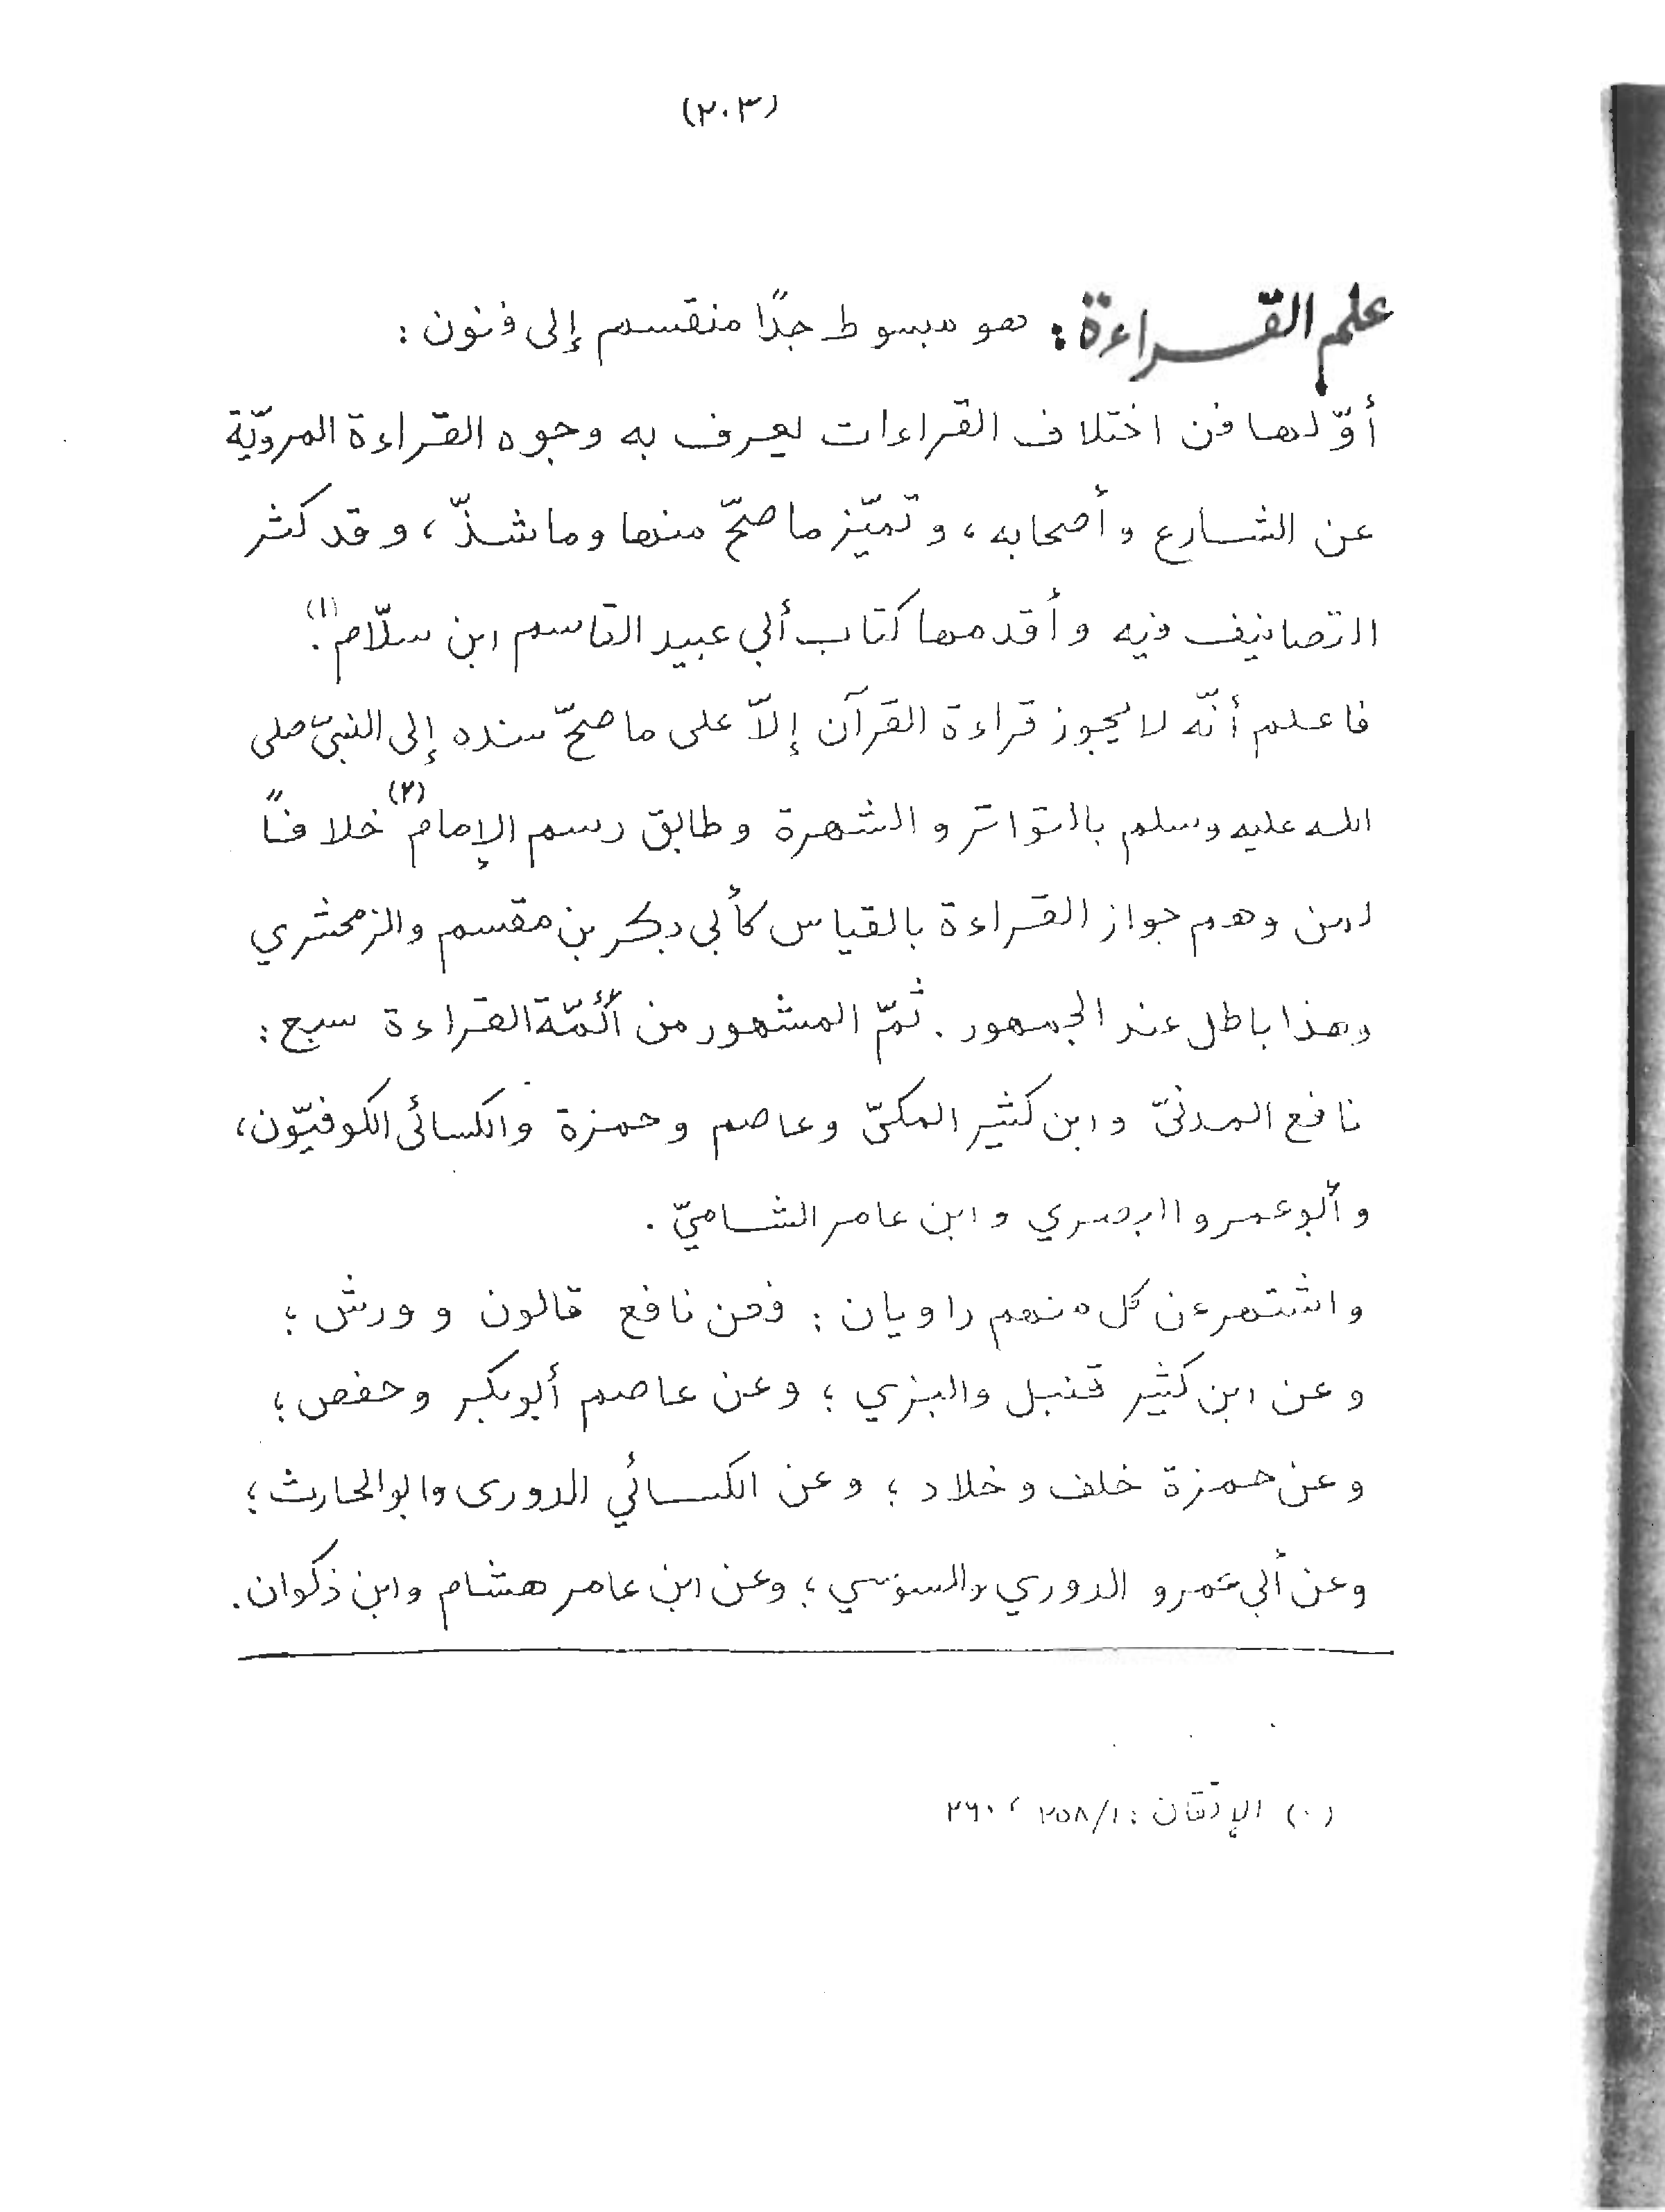 (٢٠٣)
علم القراءة: هو مبسوط جدًا منقسم إلى فنون:
أوّلها فن اختلاف القراءات يعرف به وجوه القراءة المرويّة
عن الشارع وأصحابه، وتميّز ما صحّ منها وما شذّ، وقد كثر
التصانيف فيه وأقدمها كتاب أبي عبيد القاسم ابن سلّام(١).
فاعلم أنّه لا يجوز قراءة القرآن إلاّ على ما صحّ سنده إلى النبيّ صلى
الله عليه وسلم بالتواتر والشهرة وطابق رسم الإمام(٢) خلافًا
لمن وهم جواز القراءة بالقياس كأبي بكر بن مقسم والزمخشري
وهذا باطل عند الجمهور. ثمّ المشهور من أئمّة القراءة سبع:
نافع المدنيّ وابن كثير المكيّ وعاصم وحمزة والكسائى الكوفيّون،
وأبو عمرو البصري وابن عامر الشاميّ.
واشتهر عن كل منهم راويان: فعن نافع قالون وورش؛
وعن ابن كثير قنبل والبزي؛ وعن عاصم أبو بكر وحفص؛
وعن حمزة خلف وخلاد؛ وعن الكسائي الدورى وابو الحارث؛
وعن أبي عمرو الدوري والسوسي؛ وعن ابن عامر هشام وابن ذكوان.
(٠) الإتقان: ١/٢٥٨، ٢٦٠